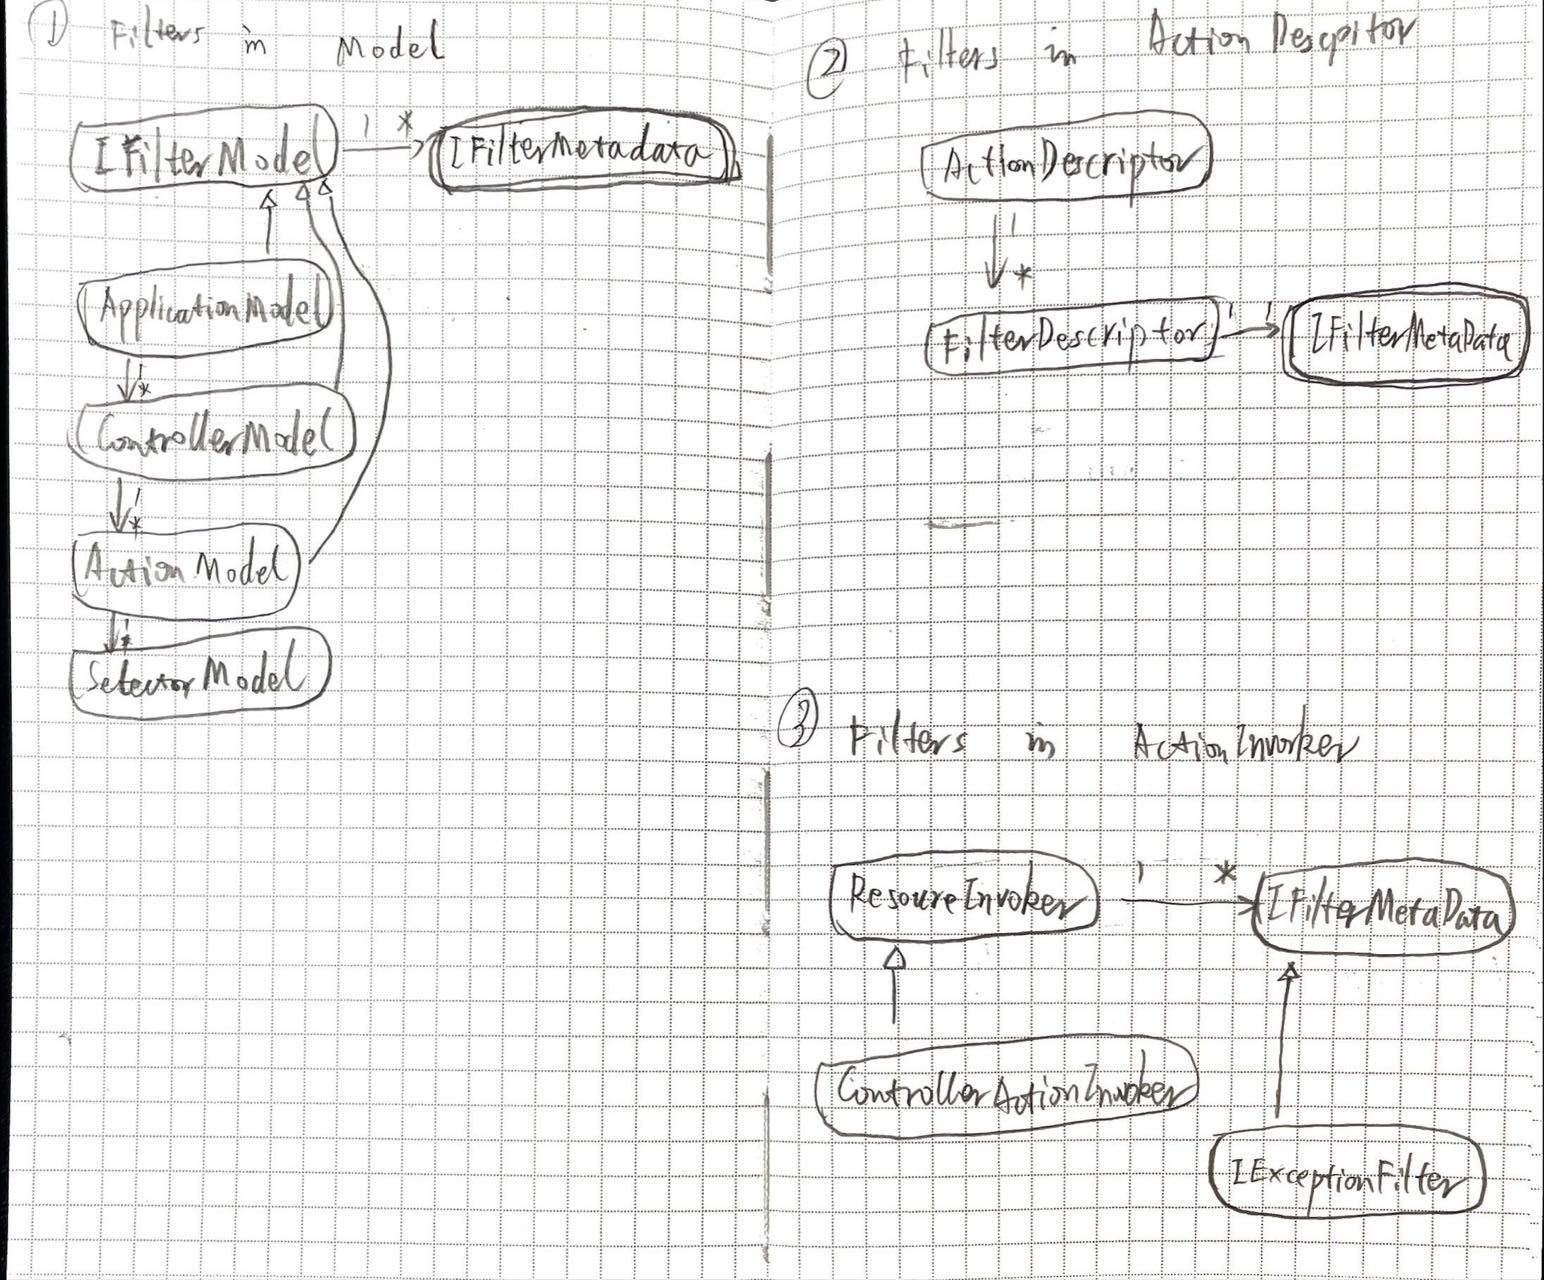 ① Filters in Model
IFilterModel 1 * IFilterMetadata
ApplicationModel
1 *
ControllerModel
1 *
Action Model
1 *
Selector Model
② Filters in Action Descpitor
ActionDescriptor
1
*
FilterDescriptor 1 1 IFilterMetaData
③ Filters in ActionInvoker
ResoureInvoker 1 * IFilterMetaData
ControllerActionInvoker
IExceptionFilter